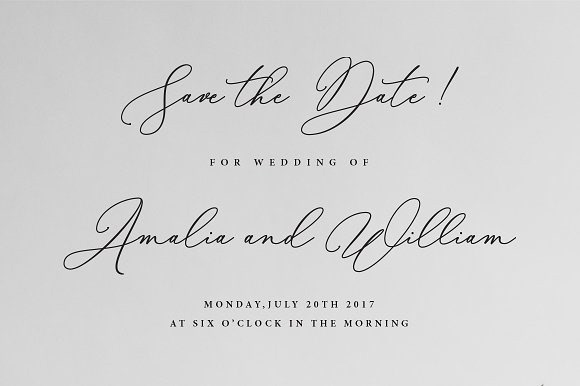 Save the Date !
FOR WEDDING OF
Amalia and William
MONDAY,JULY 20TH 2017
AT SIX O'CLOCK IN THE MORNING